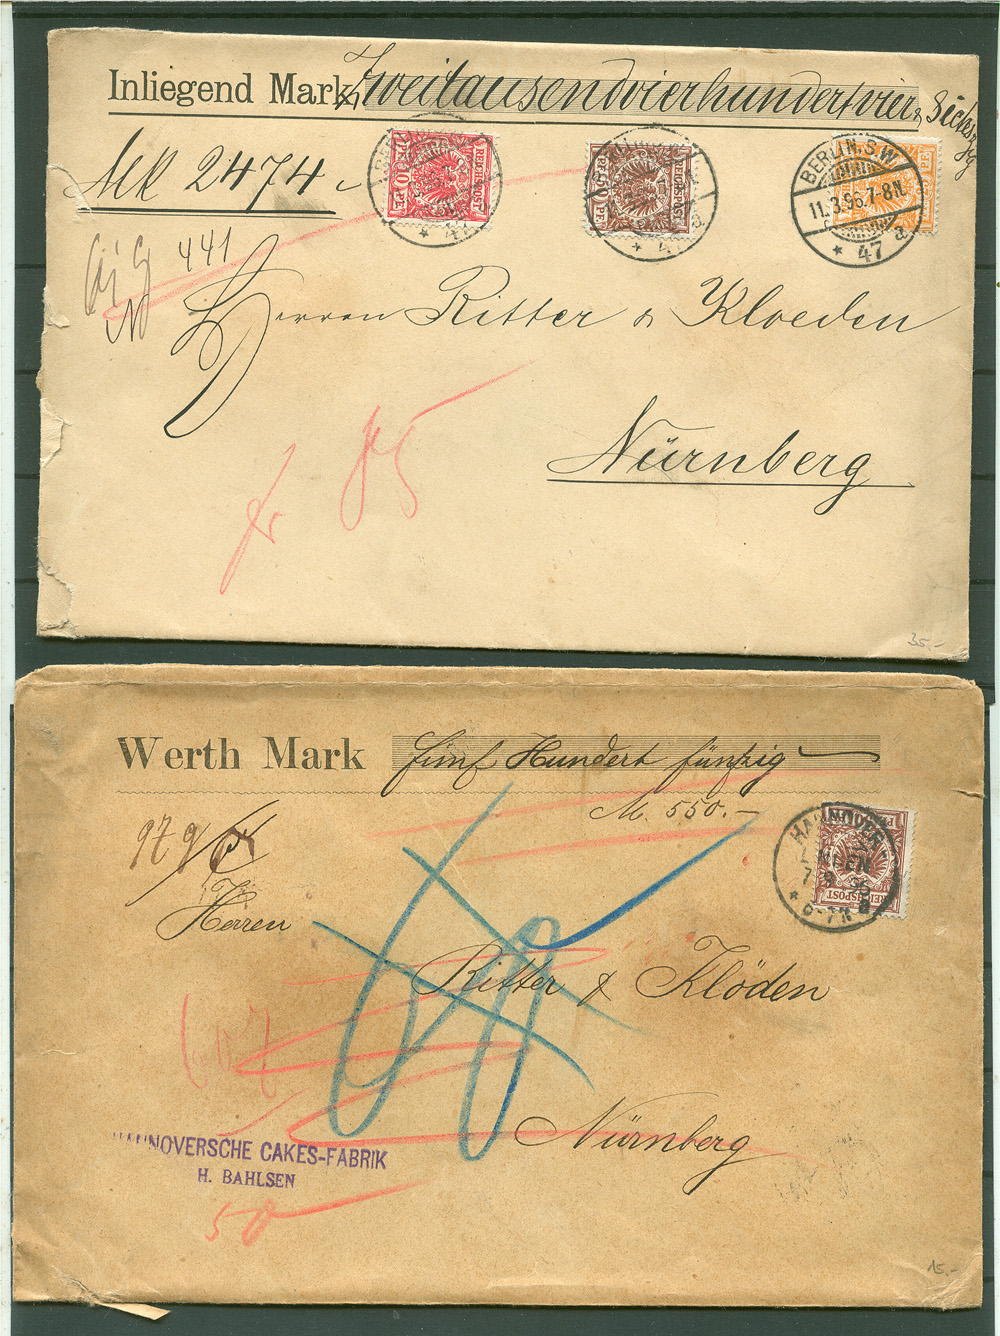 Inliegend Mark Zweitausendvierhundertvier
Mk 2474
REICHSPOST
REICHSPOST
BERLIN, S.W.
11.3.95.7-8N.
* 47 a
441
Herren Ritter & Kloeden
85
Nürnberg
35.-
Werth Mark fünf Hundert fünfzig
M. 550.-
HANNOVER
LINDEN
REICHSPOST
979
Herren
Ritter & Klöden
Nürnberg
HANNOVERSCHE CAKES-FABRIK
H. BAHLSEN
50
15.-